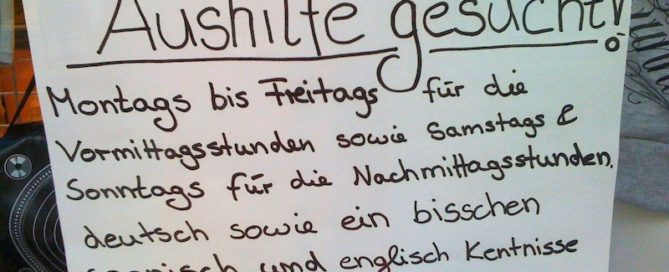 Aushilfe gesucht!
Montags bis Freitags für die
Vormittagsstunden sowie Samstags &
Sonntags für die Nachmittagsstunden.
deutsch sowie ein bisschen
spanisch und englisch Kentnisse